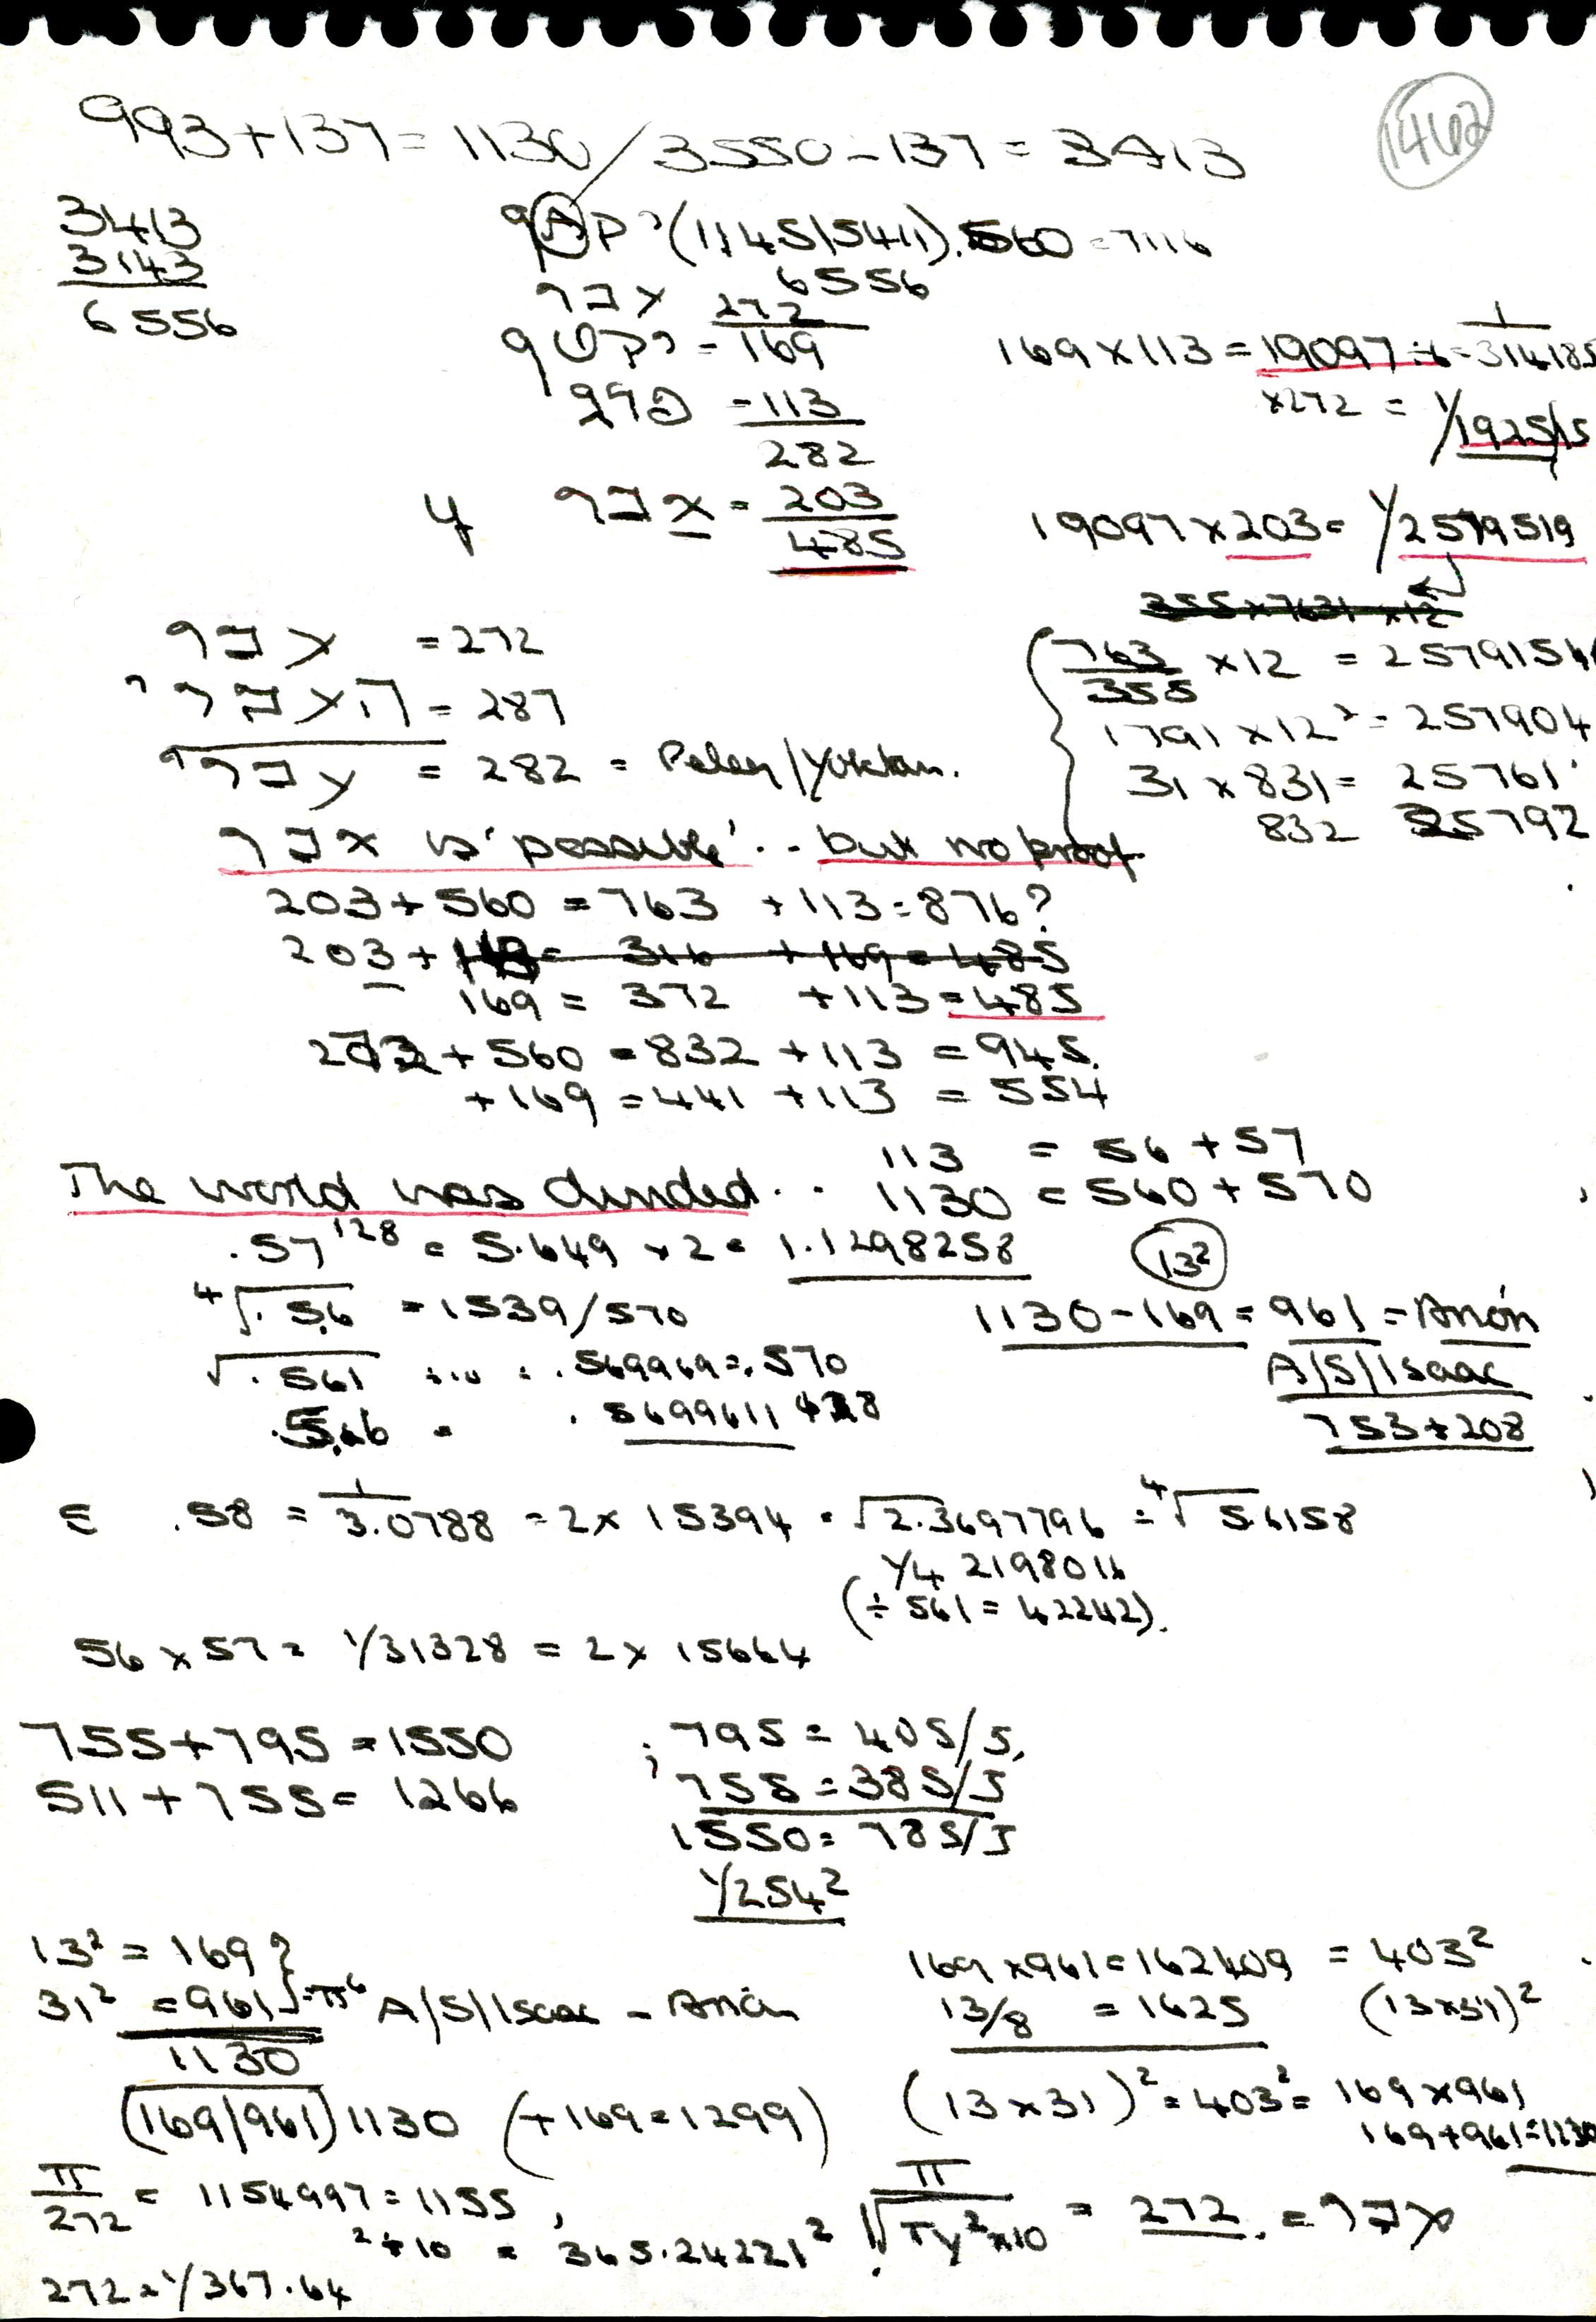 993+137=1130/3550-137=3413
1462
3413
3143
6556
(1145/5411).560=7116
6556
272
=169
=113
282
203
485
169×113=19097÷6=1/314185
×272=1/1925/15
19097×203=1/2579519
355×7631×12
=272
=287
=282=Peleg/Yoktan.
763/355×12=2579154
1791×12²=257904
31×831=25761
832 25792
is 'possible'.. but no proof.
203+560=763+113=876?
203+113=316+169=485
169=372+113=485
272+560=832+113=945.
+169=441+113=554
113=56+57
The world was divided.. 1130=560+570
.57¹²⁸=5.649×2=1.1298258
13²
⁴√.56=1539/570
1130-169=961=Arión
√.561 .569969=.570
A/S/Isaac
.5699611428
753+208
.58=1/3.0788=2×15394=√2.3697796=⁴√5.6158
1/4 2198016
(÷561=42242).
56×57=1/31328=2×15664
755+795=1550
511+755=1266
;795=405/5,
755=385/5
1550=785/5
1/254²
13²=169?
31²=961 π⁶ A/S/Isaac - Arión
1130
(169/961)1130 (+169=1299)
169×961=162409=403²
13/8=1625 (13×31)²
(13×31)²=403²=169×961
169+961=1130
π/272=1154997=1155,
²÷10=365.24221²
π/√Ty²×10=272.=פלג
272=1/367.64